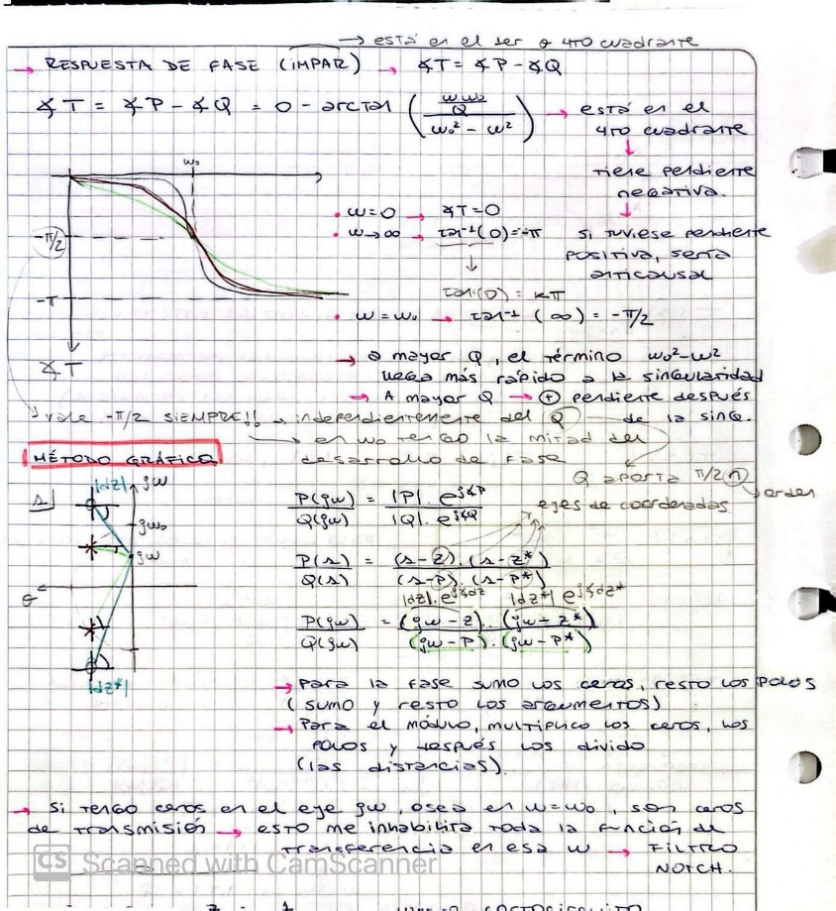 → está en el 3er o 4to cuadrante
→ RESPUESTA DE FASE (IMPAR) → ∡T = ∡P - ∡Q
∡T = ∡P - ∡Q = 0 - arctan ( (ωω₀/Q) / (ω₀² - ω²) ) → está en el
4to cuadrante
↓
tiene pendiente
negativa.
↓
si tuviese pendiente
positiva, sería
anticausal
ω₀
-π/2
-π
∡T
• ω=0 → ∡T=0
• ω→∞ → tan⁻¹(0)=-π
↓
tan(0) = kπ
• ω=ω₀ → tan⁻¹(∞) = -π/2
→ a mayor Q, el término ω₀²-ω²
llega más rápido a la singularidad
→ A mayor Q → ⊕ pendiente después
de la sing.
vale -π/2 SIEMPRE!! → independientemente del Q
→ en ω₀ tengo la mitad del
desarrollo de fase
Q aporta π/2 n → orden
ejes de coordenadas
MÉTODO GRÁFICO
s
|dz|
jω
jω₀
jω
σ
|dz*|
P(jω)/Q(jω) = |P|. e^j∡P / |Q|. e^j∡Q
P(s)/Q(s) = (s-z).(s-z*) / (s-P).(s-P*)
|dz|.e^j∡dz |dz*| e^j∡dz*
P(jω)/Q(jω) = (jω-z).(jω+z*) / (jω-P).(jω-P*)
→ Para la fase sumo los ceros, resto los polos
(sumo y resto los argumentos)
→ Para el módulo, multiplico los ceros, los
polos y después los divido
(las distancias).
→ Si tengo ceros en el eje jω, osea en ω=ω₀, son ceros
de transmisión → esto me inhabilita toda la función de
transferencia en esa ω → FILTRO
NOTCH.
CS Scanned with CamScanner